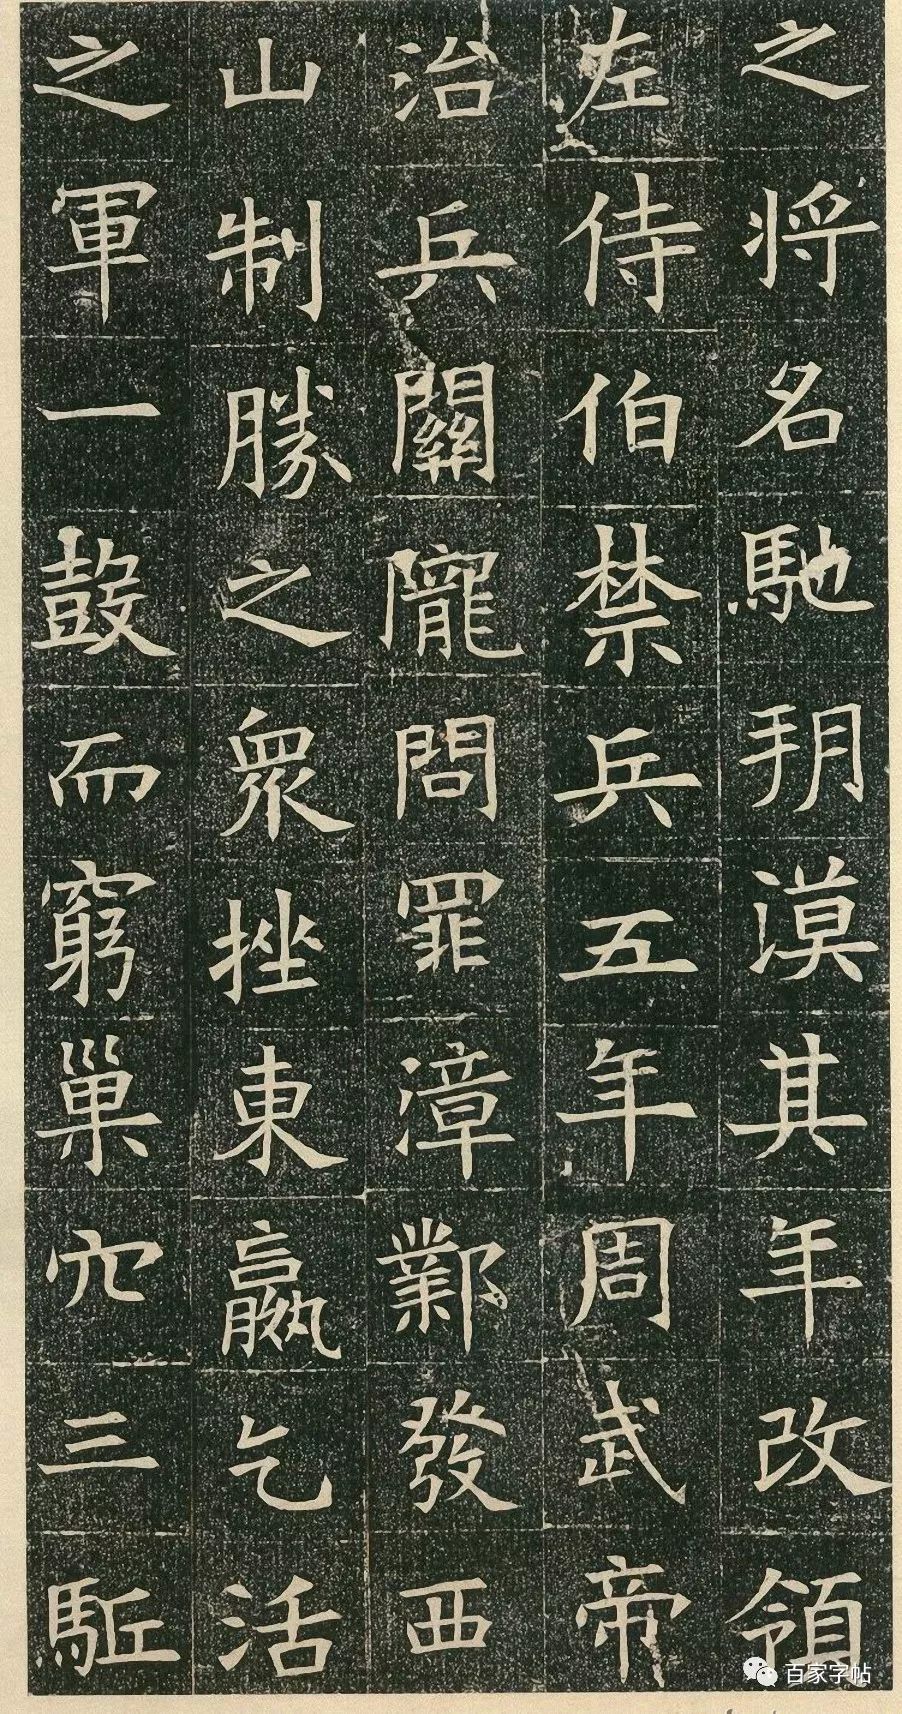 之将名馳玥漠其年改領
左侍伯禁兵五年周武帝
治兵關隴問罪漳鄴發西
山制勝之衆挫東嬴乞活
之軍一鼓而窮巢穴三駈
百家字帖